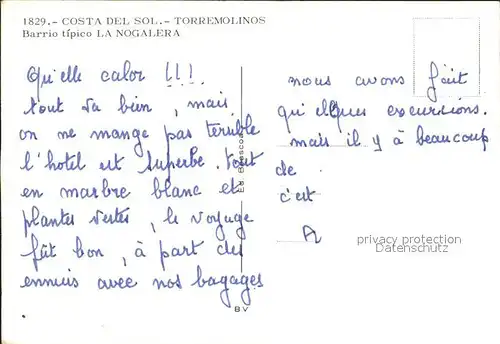 1829.- COSTA DEL SOL.- TORREMOLINOS
Barrio típico LA NOGALERA
Qu'elle calor !!!
tout va bien, mais
on ne mange pas terrible
l'hotel est superbe. tout
en marbre blanc et
plantes vertes, le voyage
fût bon, à part des
ennuis avec nos bagages
nous avons fait
qu'elques excursions.
mais il y à beaucoup
de
c'est
A
privacy protection
Datenschutz
BV